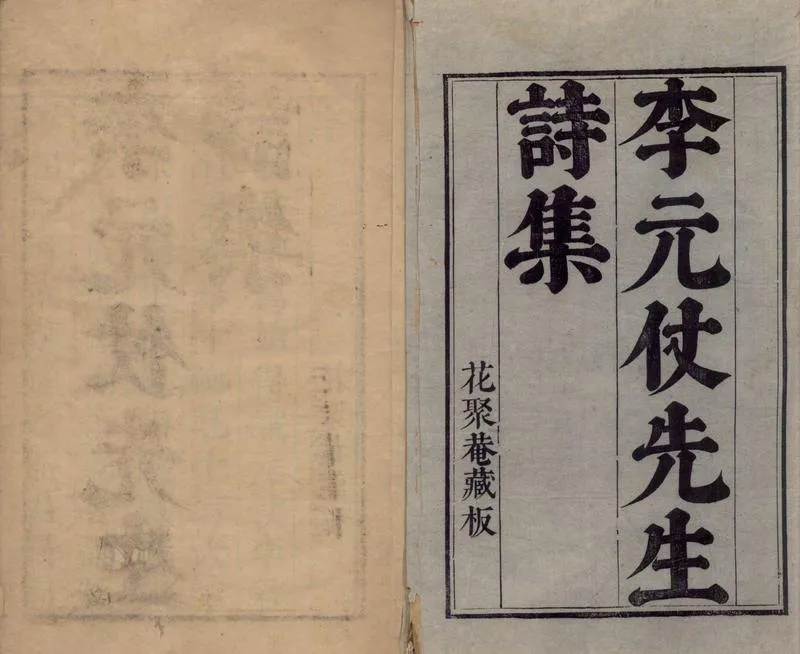 李元仗先生
詩集
花聚菴藏板